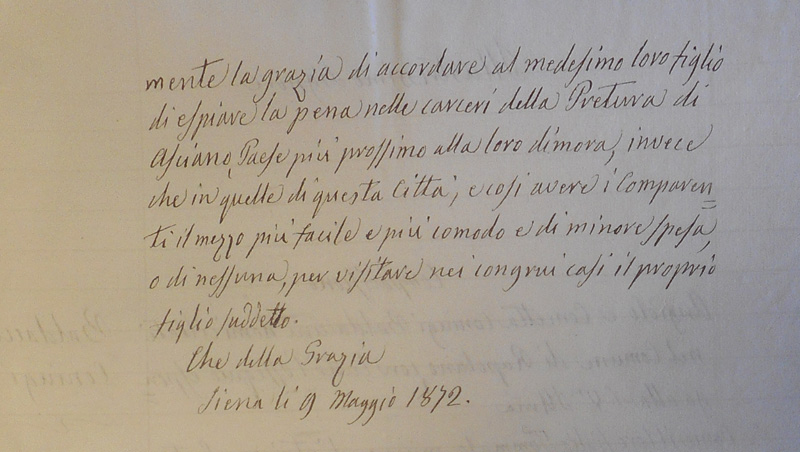 mente la grazia di accordare al medesimo loro figlio
di espiare la pena nelle carceri della Pretura di
Asciano, Paese più prossimo alla loro dimora, invece
che in quelle di questa Città, e così avere i Comparen=
ti il mezzo più facile e più comodo e di minore spesa,
o di nessuna, per visitare nei congrui casi il proprio
figlio suddetto.
Che della Grazia
Siena li 9 Maggio 1872.